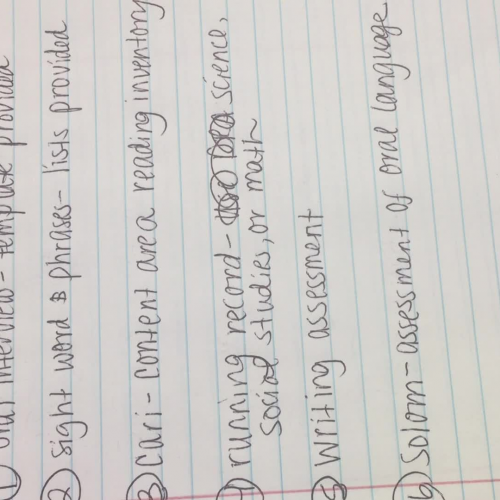 ① oral interview - template provided
② sight word & phrases - lists provided
③ cari - content area reading inventory
④ running record - science,
social studies, or math
⑤ writing assessment
⑥ solom - assessment of oral language